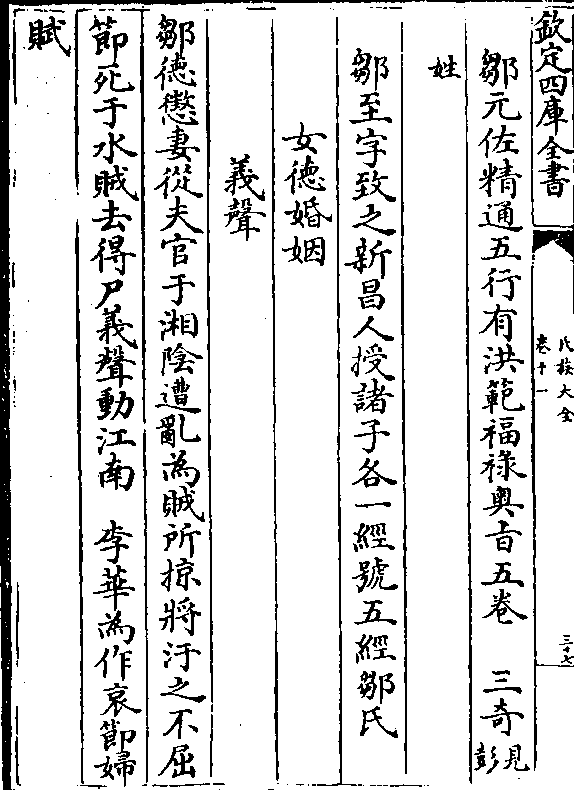 欽定四庫全書
氏族大全
卷十一
三十七
鄒元佐精通五行有洪範福祿奥旨五卷　三奇見彭
姓
鄒至字致之新昌人授諸子各一經號五經鄒氏
女德婚姻
義聲
鄒徳懲妻從夫官于湘陰遭亂為賊所掠將汙之不屈
節死于水賊去得尸義聲動江南　李華為作哀節婦
賦